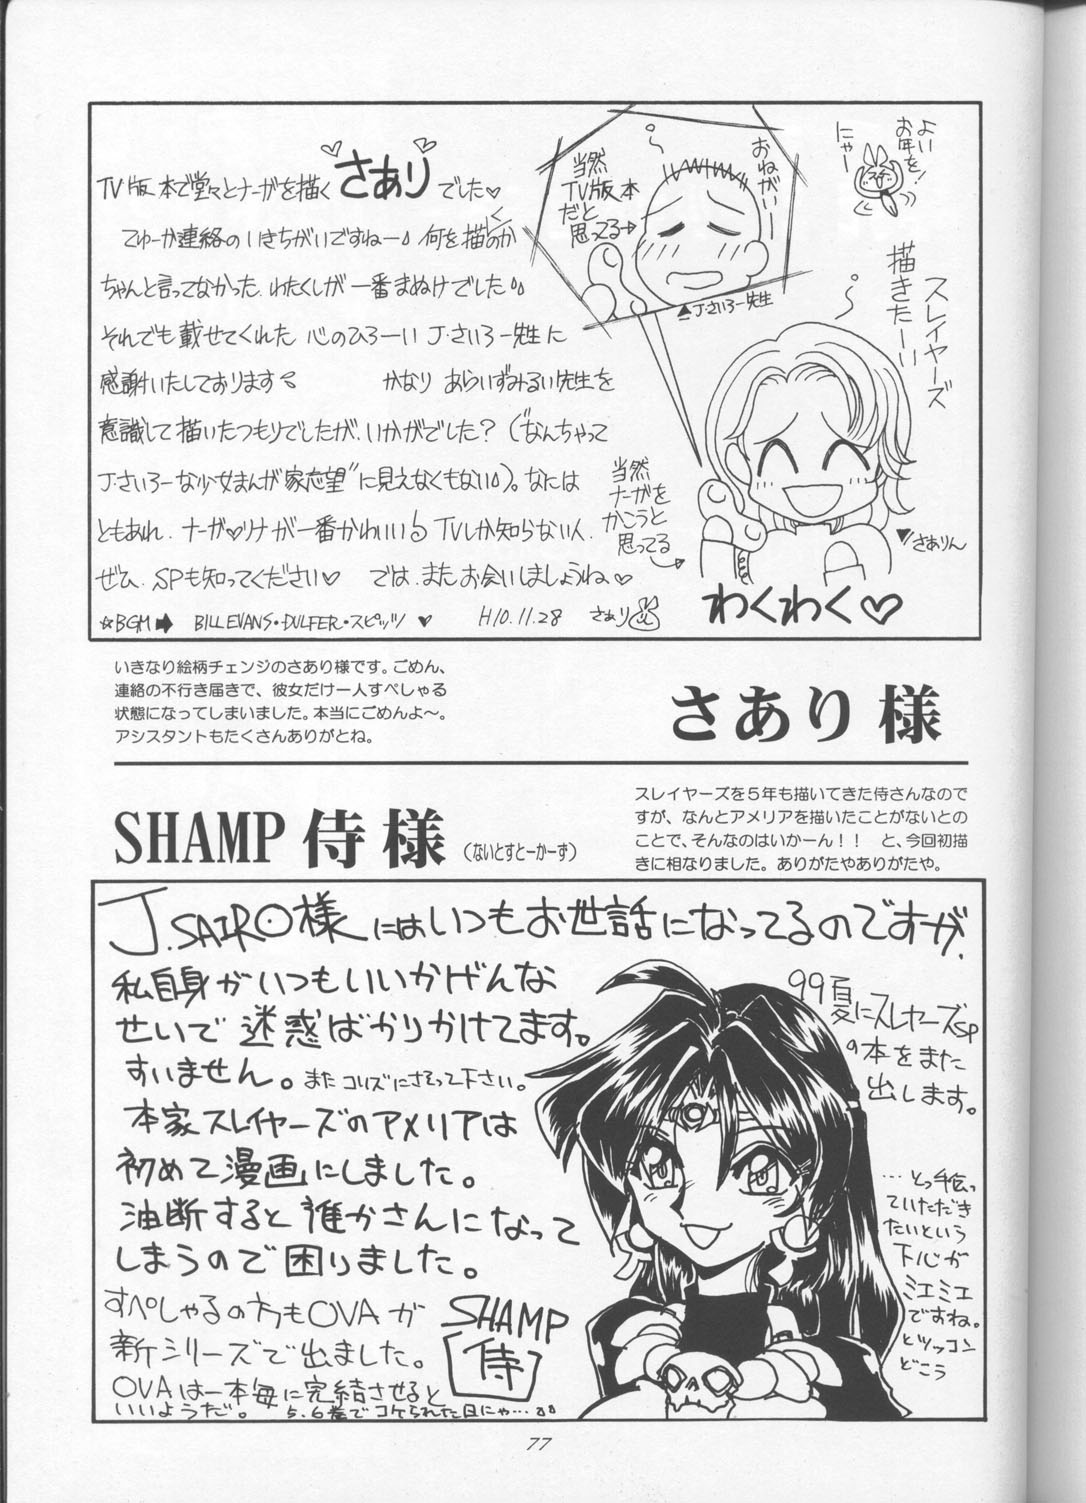 TV版本で堂々とナーガを描く さあり でした♡
てゆーか連絡のいきちがいですねー 何を描くのか
ちゃんと言ってなかった、わたくしが一番まぬけでした
それでも載せてくれた 心のひろーい J・さいろー先生に
感謝いたしております かなり あらいずみるい先生を
意識して描いたつもりでしたが、いかがでした？（“なんちゃって
J・さいろーな少女まんが家志望”に見えなくもない）。なには
ともあれ、ナーガ♡リナが一番かわいい TVしか知らない人、
ぜひ、SPも知ってください♡ では、またお会いしましょうね♡
☆BGM➡ BILL EVANS・DULFER・スピッツ ♥ H10.11.28 さあり
よい
お年を！
にゃー
おねがいー
当然
TV版本
だと
思ってる→
▲J・さいろー先生
スレイヤーズ
描きたーい
当然
ナーガを
かこうと
思ってる
▼さありん
わくわく♡
いきなり絵柄チェンジのさあり様です。ごめん、
連絡の不行き届きで、彼女だけ一人すぺしゃる
状態になってしまいました。本当にごめんよ〜。
アシスタントもたくさんありがとね。
さあり 様
SHAMP 侍 様（ないとすとーかーず）
スレイヤーズを５年も描いてきた侍さんなので
すが、なんとアメリアを描いたことがないとの
ことで、そんなのはいかーん！！ と、今回初描
きに相なりました。ありがたやありがたや。
J.SAIRO様にはいつもお世話になってるのですが、
私自身がいつもいいかげんな
せいで迷惑ばかりかけてます。
すいません。またコリズにさそって下さい。
本家スレイヤーズのアメリアは
初めて漫画にしました。
油断すると誰かさんになって
しまうので困りました。
すぺしゃるの方もOVAが
新シリーズで出ました。
OVAは一本毎に完結させると
いいようだ。5.6巻でコケられた日にゃ…
SHAMP
侍
99夏にスレヤーズSP
の本をまた
出します。
…とっ手伝っ
ていただき
たいという
下心が
ミエミエ
ですね。
とツッコン
どこう
77